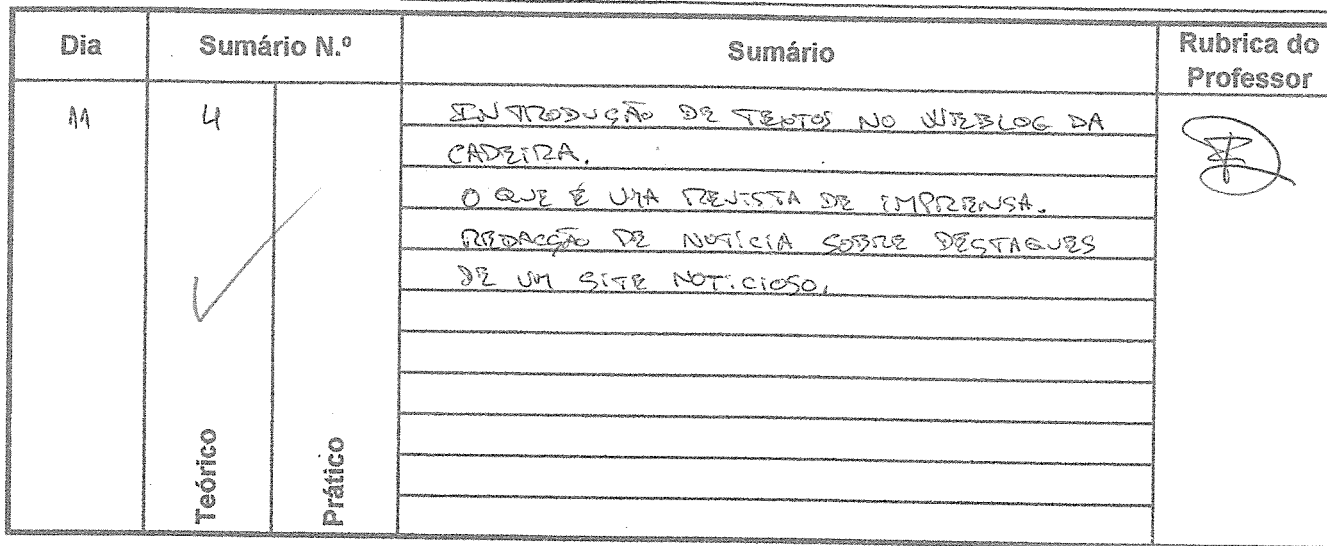 Dia
Sumário N.º
Sumário
Rubrica do
Professor
11
4
INTRODUÇÃO DE TEXTOS NO WEBLOG DA
CADEIRA.
O QUE É UMA REVISTA DE IMPRENSA.
REDACÇÃO DE NOTÍCIA SOBRE DESTAQUES
DE UM SITE NOTICIOSO.
Teórico
Prático